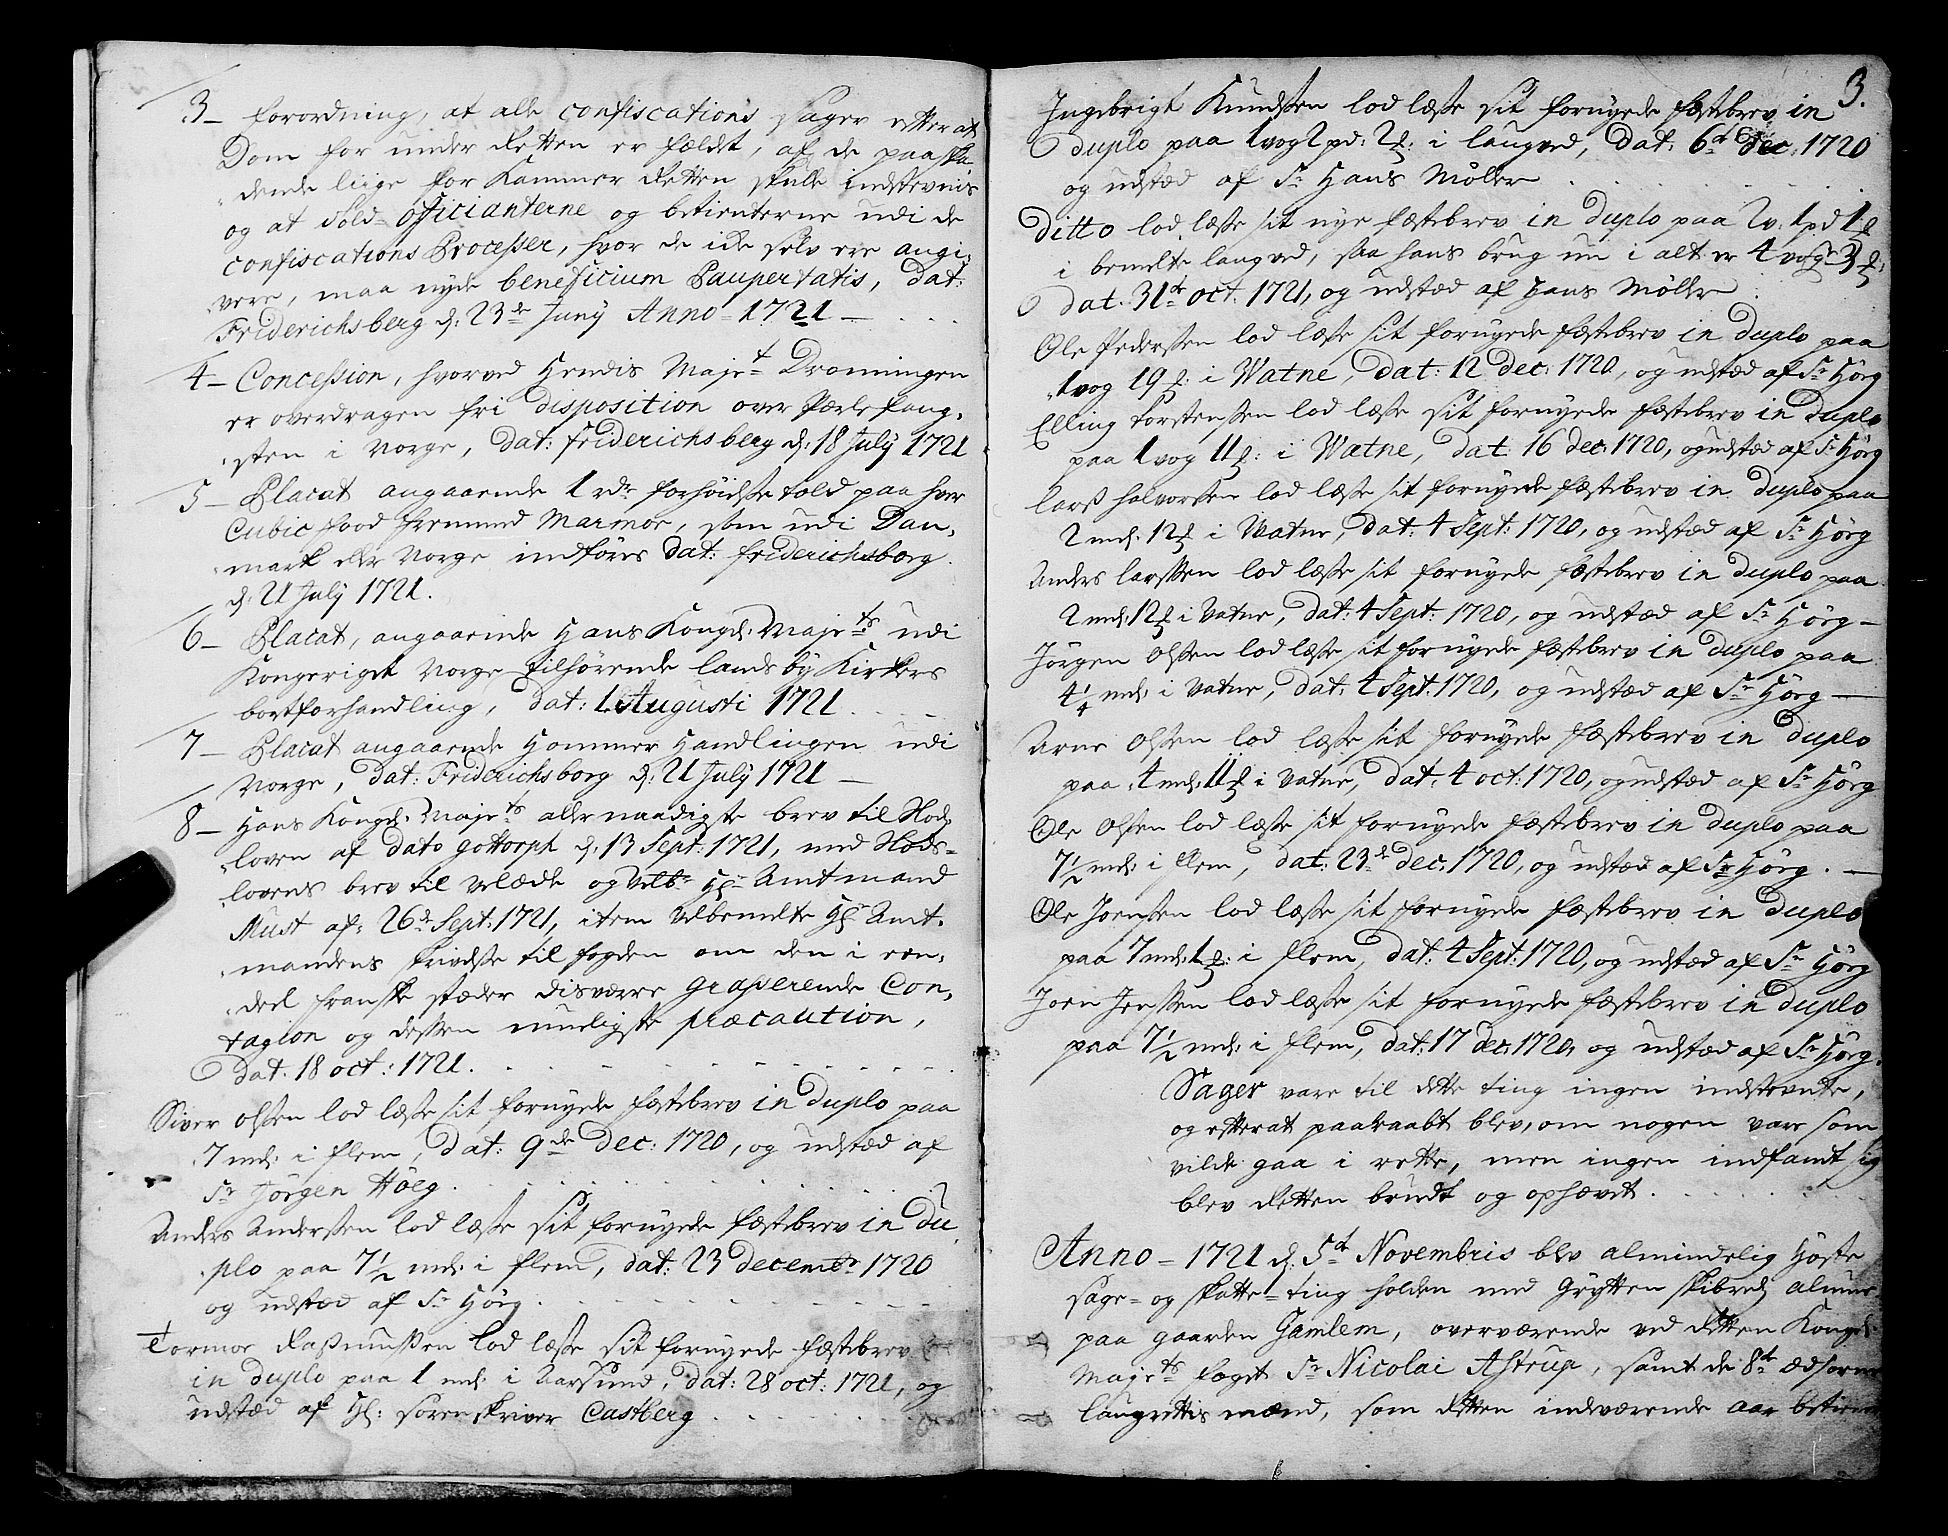 3 – forordning, at alle confiscations sager efter at
Dom for under Retten er fældet, af de paaska
dende liige for Kammer Retten skulle indstevnis
og at Told-officianterne og betienterne udi de
confiscations Processer, hvor de icke selv ere angi-
vere, maa nyde beneficium Paupertatis, dat:
Friderichsberg d: 23de Juny Anno - 1721 –
4 – Concession, hvorved Hendis Majet Dronningen
er overdragen fri disposition over Perle fang-
sten i Norge, dat: friderichsberg d: 18 July 1721
5 – Placat angaaende 1 rdr forhöidste told paa hver
Cubic food fremmed Marmor, som udi Dan-
mark eller Norge indföres dat: friderichsborg
d: 21 July 1721.
6 – Placat, angaaende Hans Kongel: Majets udi
Kongeriget Norge tilhörende landsby Kirkers
bortforhandling, dat: 1 Augusti 1721
7 – Placat angaaende Hommer Handlingen udi
Norge, dat: Friderichsborg d: 21 July 1721 –
8 – Hans Kongel: Majets allernaadigste brev til Stods
loven af dato gottorph d: 13 Sept: 1721, med Stods-
lovens brev til velædle og velbr Hr Amtmand
Must af: 26de Sept: 1721, item velbemelte Hr Amt-
mandens skrivelse til fogden om den i een-
deel franske stæder disværre graßerende Con-
tagion og dessen mueligste præcaution,
Dat. 18 oct: 1721.
Siver olsen lod læse sit fornyede fæstebrev in duplo paa
7 mel: i flem, dat: 9de Dec: 1720, og udstæd af
Sr Jörgen Höeg.
Anders Andersen lod læse sit fornyede fæstebrev in du
plo paa 7½ mel: i flem, dat: 23 decembr 1720
og udstæd af Sr Hörg.
Tormoe Rasmussen lod læse sit fornyede fæstebrev
in duplo paa 1 mel: i Aarsund, dat: 28 oct: 1721, og
udstæd af Hr: sorenskriver Castberg
3.
Ingebrigt Knudsen lod læse sit fornyede fæstebrev in
duplo paa 1 vog 2 pd: 2 : i laugved, dat: 6te dec: 1720
og udstæd af Sr Hans Möller
Ditto lod læse sit nye fæstebrev in duplo paa 2 v: 1 pd 1
i bemelte laugved, saa hans brug nu i alt er 4 voger 3
dat. 31te oct. 1721, og udstæd af Hans Möller
Ole Pedersen lod læse sit fornyede fæstebrev in duplo paa
1 vog 19 : i Watne, dat: 12 dec: 1720, og udstæd af Sr Hörg
Elling torstensen lod læse sit fornyede fæstebrev in duplo
paa 1 vog 11 : i Watne, dat. 16 dec: 1720, og udstæd af Sr Hörg
lars halvorsen lod læse sit fornyede fæstebrev in duplo paa
2 mel: 12 i Vatne, dat: 4 Sept: 1720, og udstæd af Sr Hörg
Anders larsen lod læse sit fornyede fæstebrev in duplo paa
2 mel: 12 i Vatne, dat: 4 Sept: 1720, og udstæd af Sr Hörg –
Jörgen olsen lod læse sit fornyede fæstebrev in duplo paa
4¼ mel: i Vatne, dat: 4 Sept: 1720, og udstæd af Sr Hörg –
Arne olsen lod læse sit fornyede fæstebrev in duplo
paa 4 mel: 11 i Vatne, dat: 4 oct: 1720, og udstæd af Sr Hörg
Ole olsen lod læse sit fornyede fæstebrev in duplo paa
7½ mel: i flem, dat: 23de dec: 1720, og udstæd af Sr Hörg. –
Ole Joensen lod læse sit fornyede fæstebrev in duplo
paa 7 mel: 1 : i flem, dat: 4 Sept: 1720, og udstæd af Sr Hörg
Joen Jensen lod læse sit fornyede fæstebrev in duplo
paa 7½ mel: i flem, dat: 17 dec: 1720, og udstæd af Sr Hörg.
Sager vare til dette ting ingen indstevnte,
og efterat paaraabt blev, om nogen vare som
vilde gaa i rette, men ingen indfandt sig
blev Retten brudt og ophævet.
Anno - 1721 d: 5te Novembris blev almindelig Höste
sage- og skatte-ting holden med Grytten skibreds almue
paa gaarden Hamlem, overværende ved Retten Kongel:
Majets foget Sr Nicolai Astrup, samt de 8te Edsorne
laugrettis mænd, som Retten indeværende aar betiener